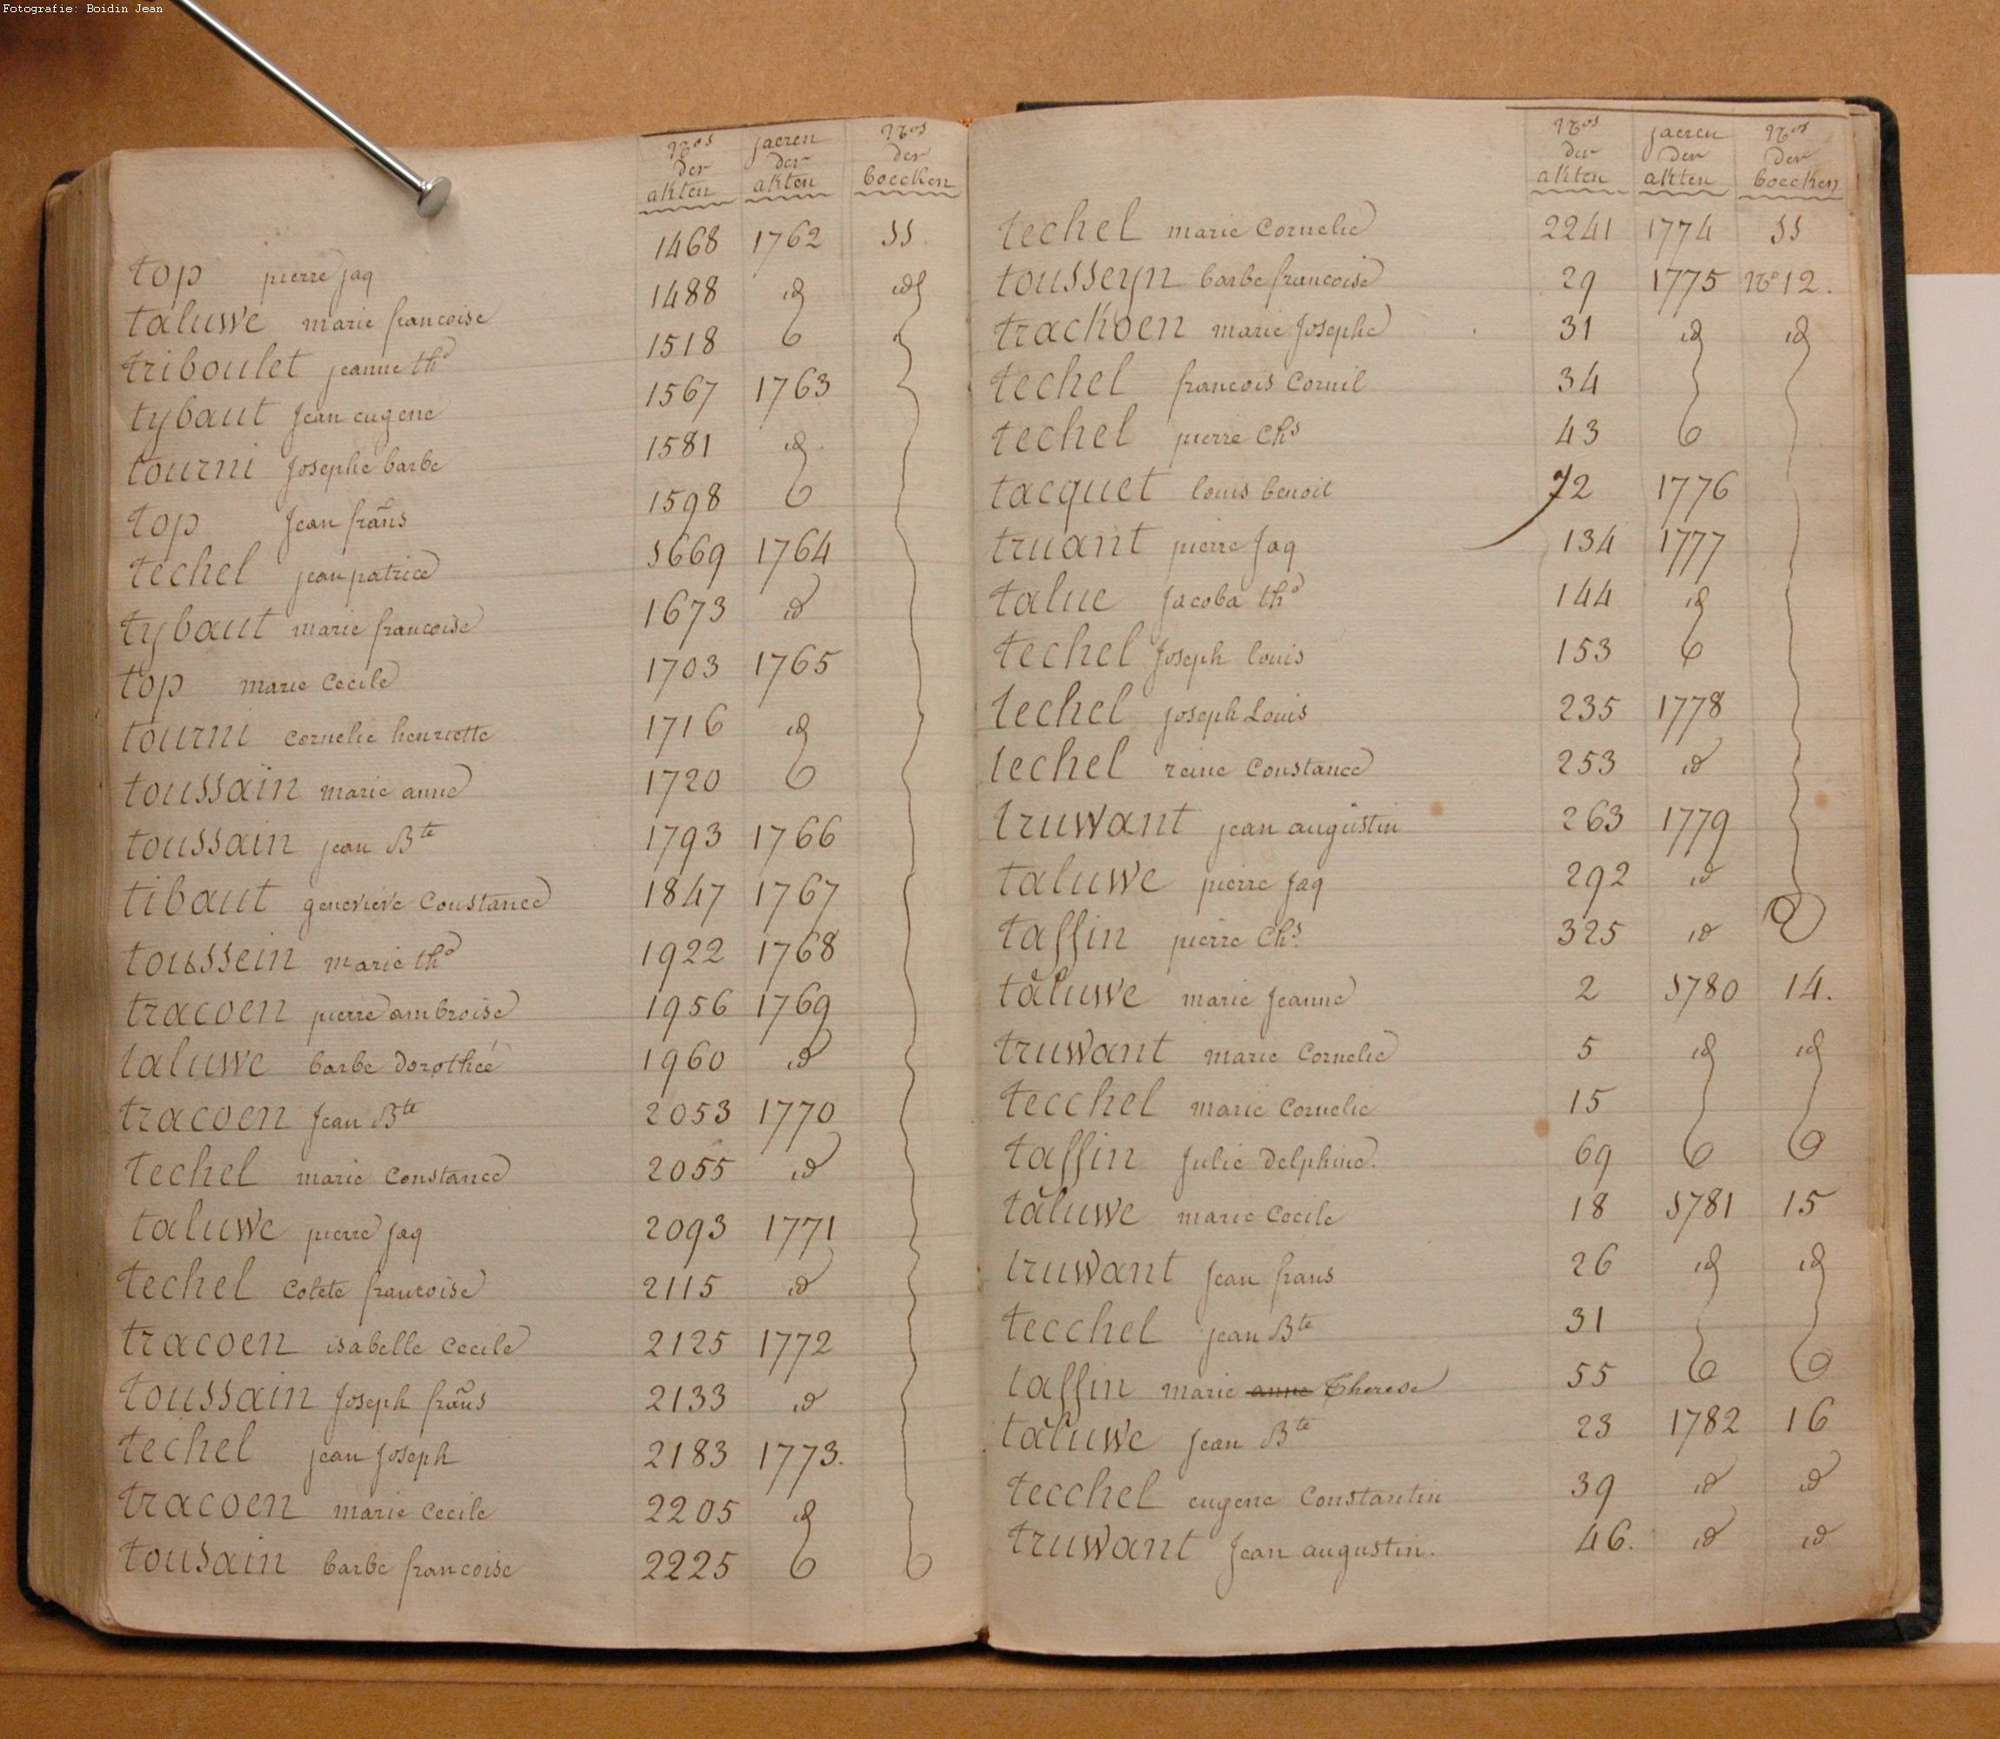 Fotografie: Boidin Jean
Nos der akten | jaeren der akten | Nos der boecken
top pierre jaq 1468 1762 11
taluwe marie francoise 1488 id id
triboulet jeanne the 1518
tybaut jean eugene 1567 1763
tourni Josephe barbe 1581 id
top Jean frans 1598
techel jean patrice 1669 1764
tybaut marie francoise 1673 id
top marie Cecile 1703 1765
tourni Cornelie henriette 1716 id
toussain marie anne 1720
toussain jean Bte 1793 1766
tibaut genevieve Constance 1847 1767
toussein marie the 1922 1768
tracoen pierre ambroise 1956 1769
taluwe barbe Dorothée 1960 id
tracoen Jean Bte 2053 1770
techel marie Constance 2055 id
taluwe pierre Jaq 2093 1771
techel Colete francoise 2115 id
tracoen isabelle Cecile 2125 1772
toussain Joseph frans 2133 id
techel jean Joseph 2183 1773.
tracoen marie Cecile 2205 id
tousain barbe francoise 2225
Nos der akten | jaeren der akten | Nos der boecken
techel marie Cornelie 2241 1774 11
tousseyn barbe francoise 29 1775 No 12.
trackoen marie Josephe 31 id id
techel francois Cornil 34
techel pierre Chs 43
tacquet louis benoit 72 1776
truant pierre Jaq 134 1777
talue Jacoba the 144 id
techel Joseph louis 153
techel joseph Louis 235 1778
techel reine Constance 253 id
truwant jean augustin 263 1779
taluwe pierre Jaq 292 id
taffin pierre Chs. 325 id
taluwe marie Jeanne 2 1780 14.
truwant marie Cornelie 5 id id
tecchel marie Cornelie 15
taffin Julie Delphine. 69
taluwe marie Cecile 18 1781 15
truwant Jean frans 26 id id
tecchel jean Bte 31
taffin marie anne Therese 55
taluwe Jean Bte 23 1782 16
tecchel eugene Constantin 39 id id
truwant Jean augustin. 46. id id